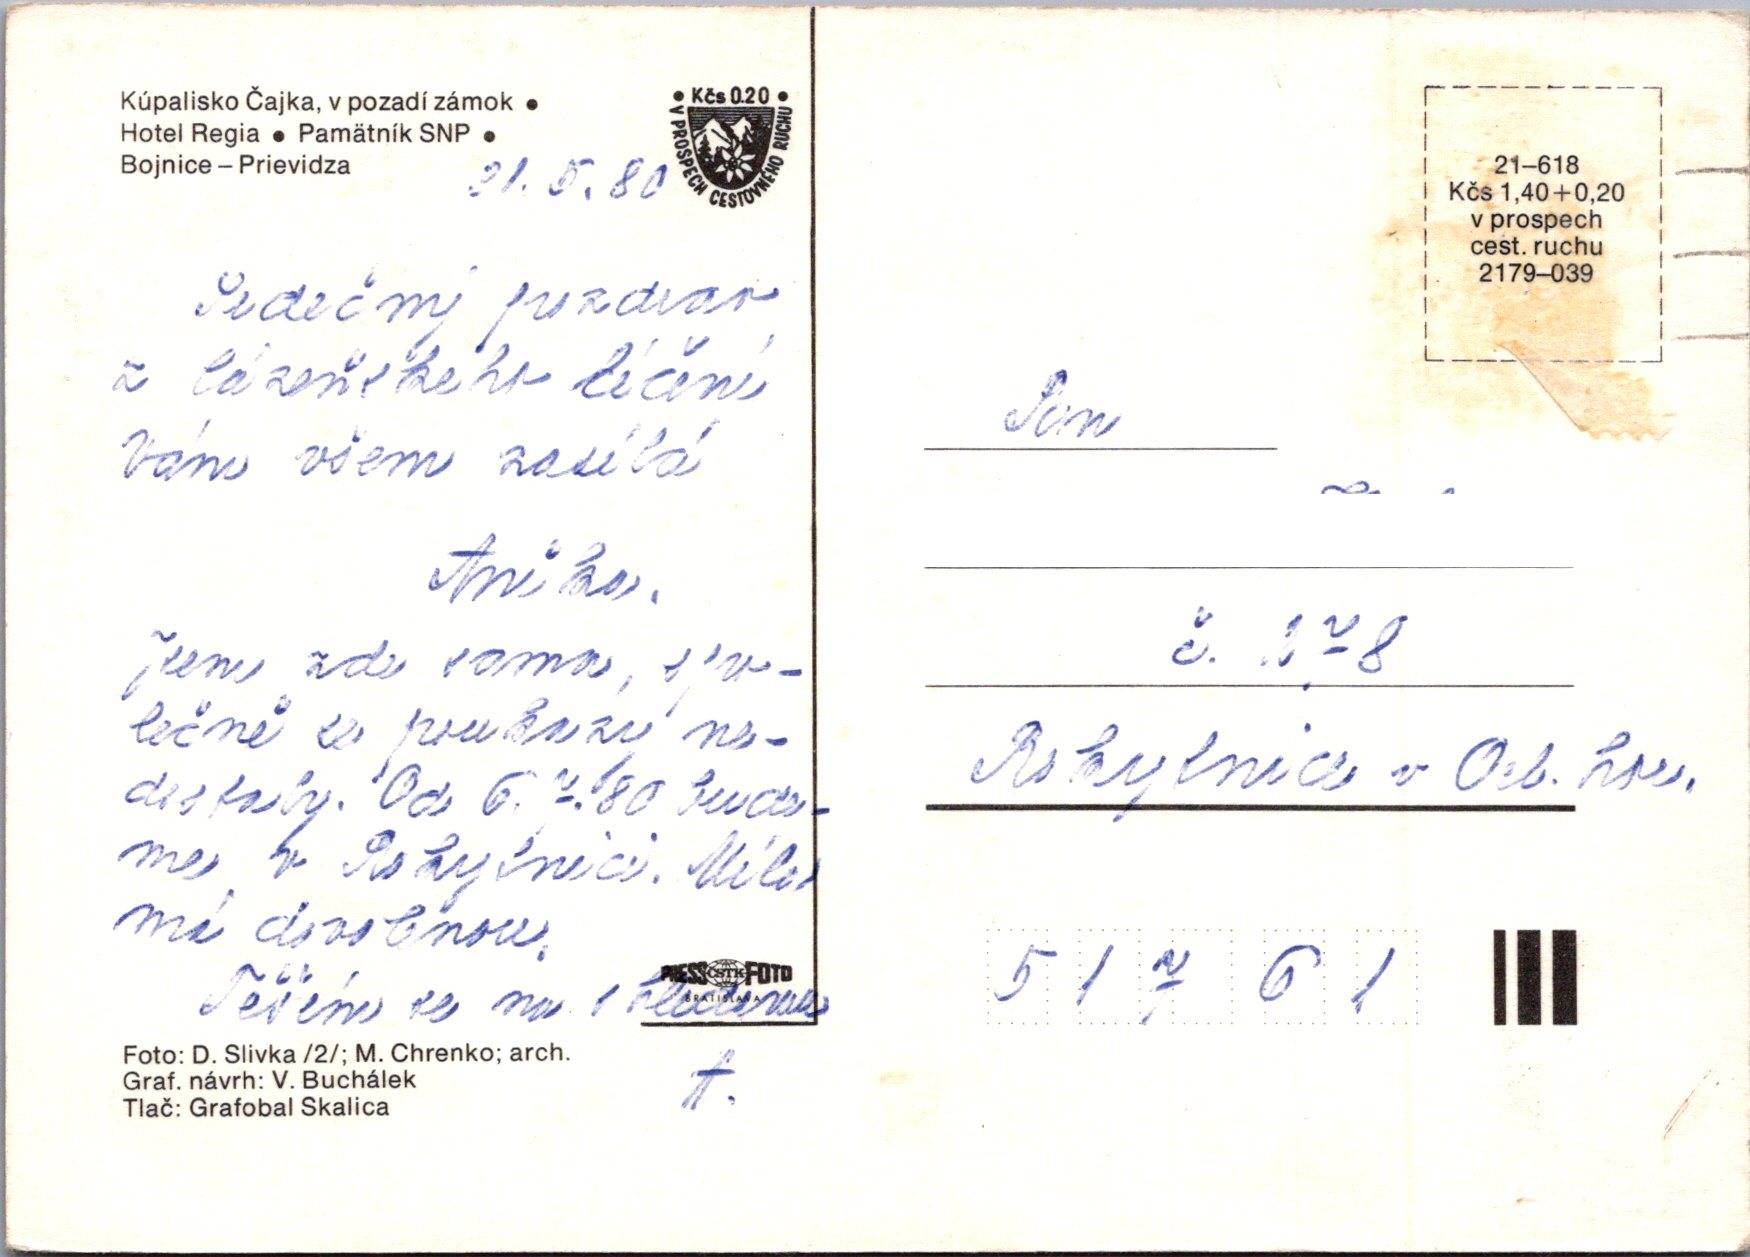 Kúpalisko Čajka, v pozadí zámok •
Hotel Regia • Pamätník SNP •
Bojnice – Prievidza
• Kčs 0.20 •
V PROSPECH CESTOVNÉHO RUCHU
21. 5. 80
Srdečný pozdrav
z lázeňského léčení
Vám všem zasílá
Anička.
Jsem zde sama, spo-
lečně se poukazy ne-
dostaly. Od 6. 7. 80 bude-
me v Rokytnici. Míla
má dovolenou.
Těším se na shledanou
A.
PRESS ČSTK FOTO
BRATISLAVA
Foto: D. Slivka /2/; M. Chrenko; arch.
Graf. návrh: V. Buchálek
Tlač: Grafobal Skalica
21–618
Kčs 1,40+0,20
v prospech
cest. ruchu
2179–039
Pan
č. 178
Rokytnice v Orl. hor.
517 61